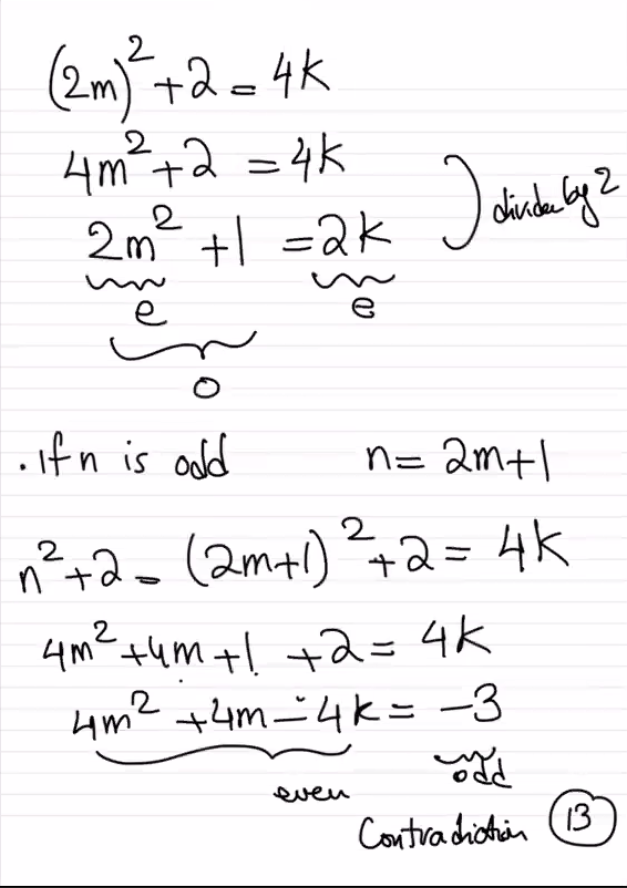 (2m)² + 2 = 4k
4m² + 2 = 4k
divide by 2
2m² + 1 = 2k
e e
o
. If n is odd n = 2m+1
n² + 2 = (2m+1)² + 2 = 4k
4m² + 4m + 1 + 2 = 4k
4m² + 4m - 4k = -3
even odd
Contradiction 13